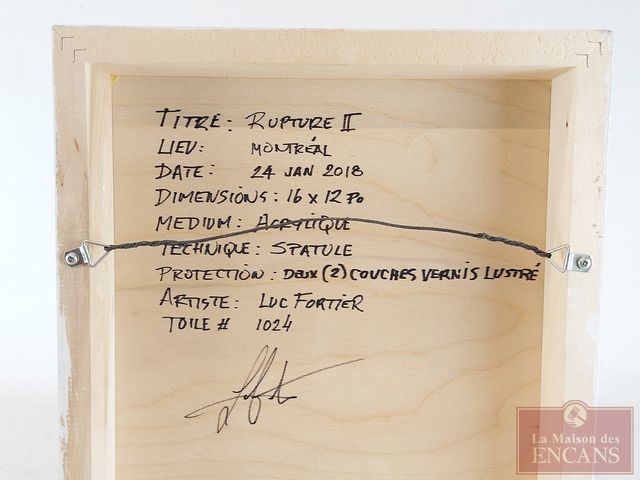 TITRE: RUPTURE II
LIEU: MONTRÉAL
DATE: 24 JAN 2018
DIMENSIONS: 16 x 12 PO
MEDIUM: ACRYLIQUE
TECHNIQUE: SPATULE
PROTECTION: DEUX (2) COUCHES VERNIS LUSTRÉ
ARTISTE: LUC FORTIER
TOILE # 1024
La Maison des
ENCANS